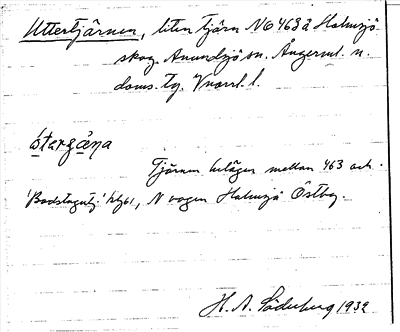 Uttertjärnen, liten tjärn NO 463 a Holmsjö
skog. Anundsjö sn. Ångerml. n.
doms. tg. Vnorrl. l.
Tjärnen belägen mellan 463 och
'Badstugutj.' N vägen Holmsjö Östby.
H. A. Söderberg 1932